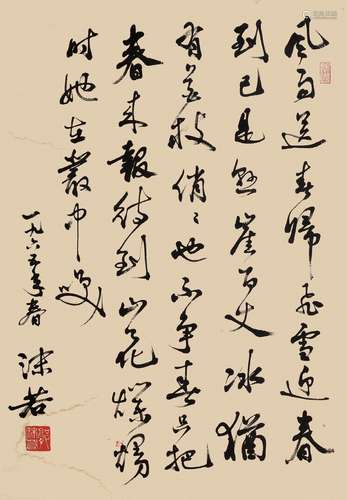 风雨送春歸飛雪迎春
到已是悬崖百丈冰猶
有花枝俏〻也不争春只把
春来報待到山花爛熳
时她在叢中咲
一九六五年春
沫若